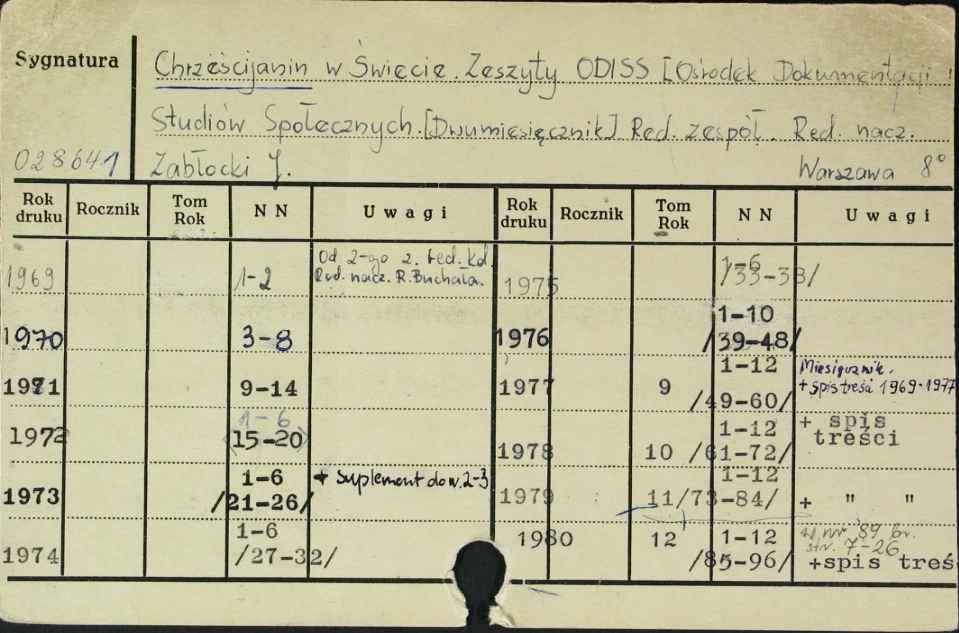 Sygnatura
Chrześcijanin w Świecie. Zeszyty ODISS [Ośrodek Dokumentacji i
Studiów Społecznych. [Dwumiesięcznik] Red. zespół. Red. nacz.
028641 Zabłocki J. Warszawa 8°
Rok druku Rocznik Tom Rok NN Uwagi Rok druku Rocznik Tom Rok NN Uwagi
1969 1-2 Od 2-go z. red. kol.
Red. nacz. R. Buchała.
1970 3-8
1971 9-14
1972 1-6
15-20
1973 1-6 + suplement do nr. 2-3
/21-26/
1974 1-6
/27-32/
1975 1-6
/33-38/
1976 1-10
/39-48/
1977 9 1-12 Miesięcznik.
/49-60/ + spis treści 1969-1977
1978 10 1-12 + spis
/61-72/ treści
1979 11 1-12
/73-84/ + " "
1980 12 1-12 nr 89 br.
str. 7-26
/85-96/ +spis treś